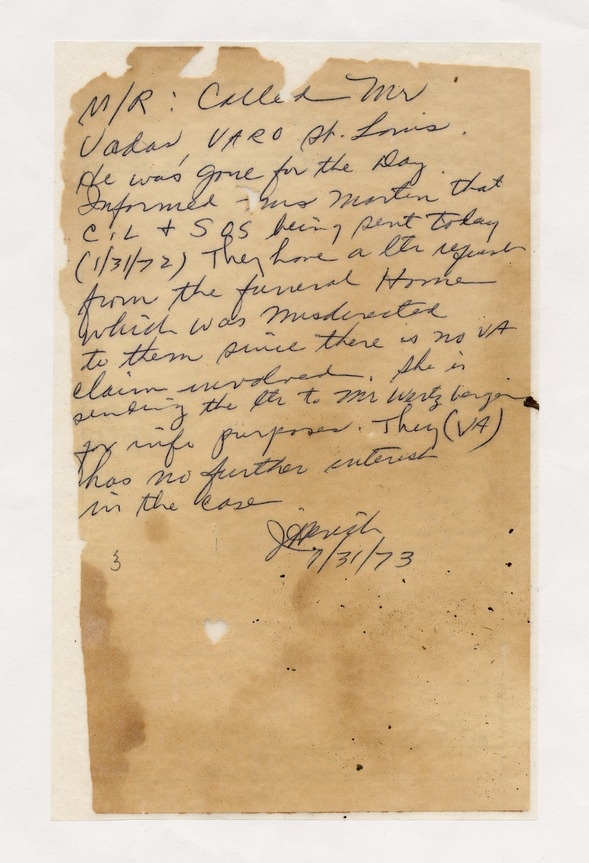 M/R: Called Mr
Vadas, VARO St. Louis.
He was gone for the Day.
Informed Ms Martin that
C.I.L & SOS being sent today
(1/31/72) They have a ltr request
from the funeral Home
which was misdirected
to them since there is no VA
claim involved. She is
sending the ltr to Mr
for info purposes. They (VA)
has no further interest
in the case
7/31/73
3